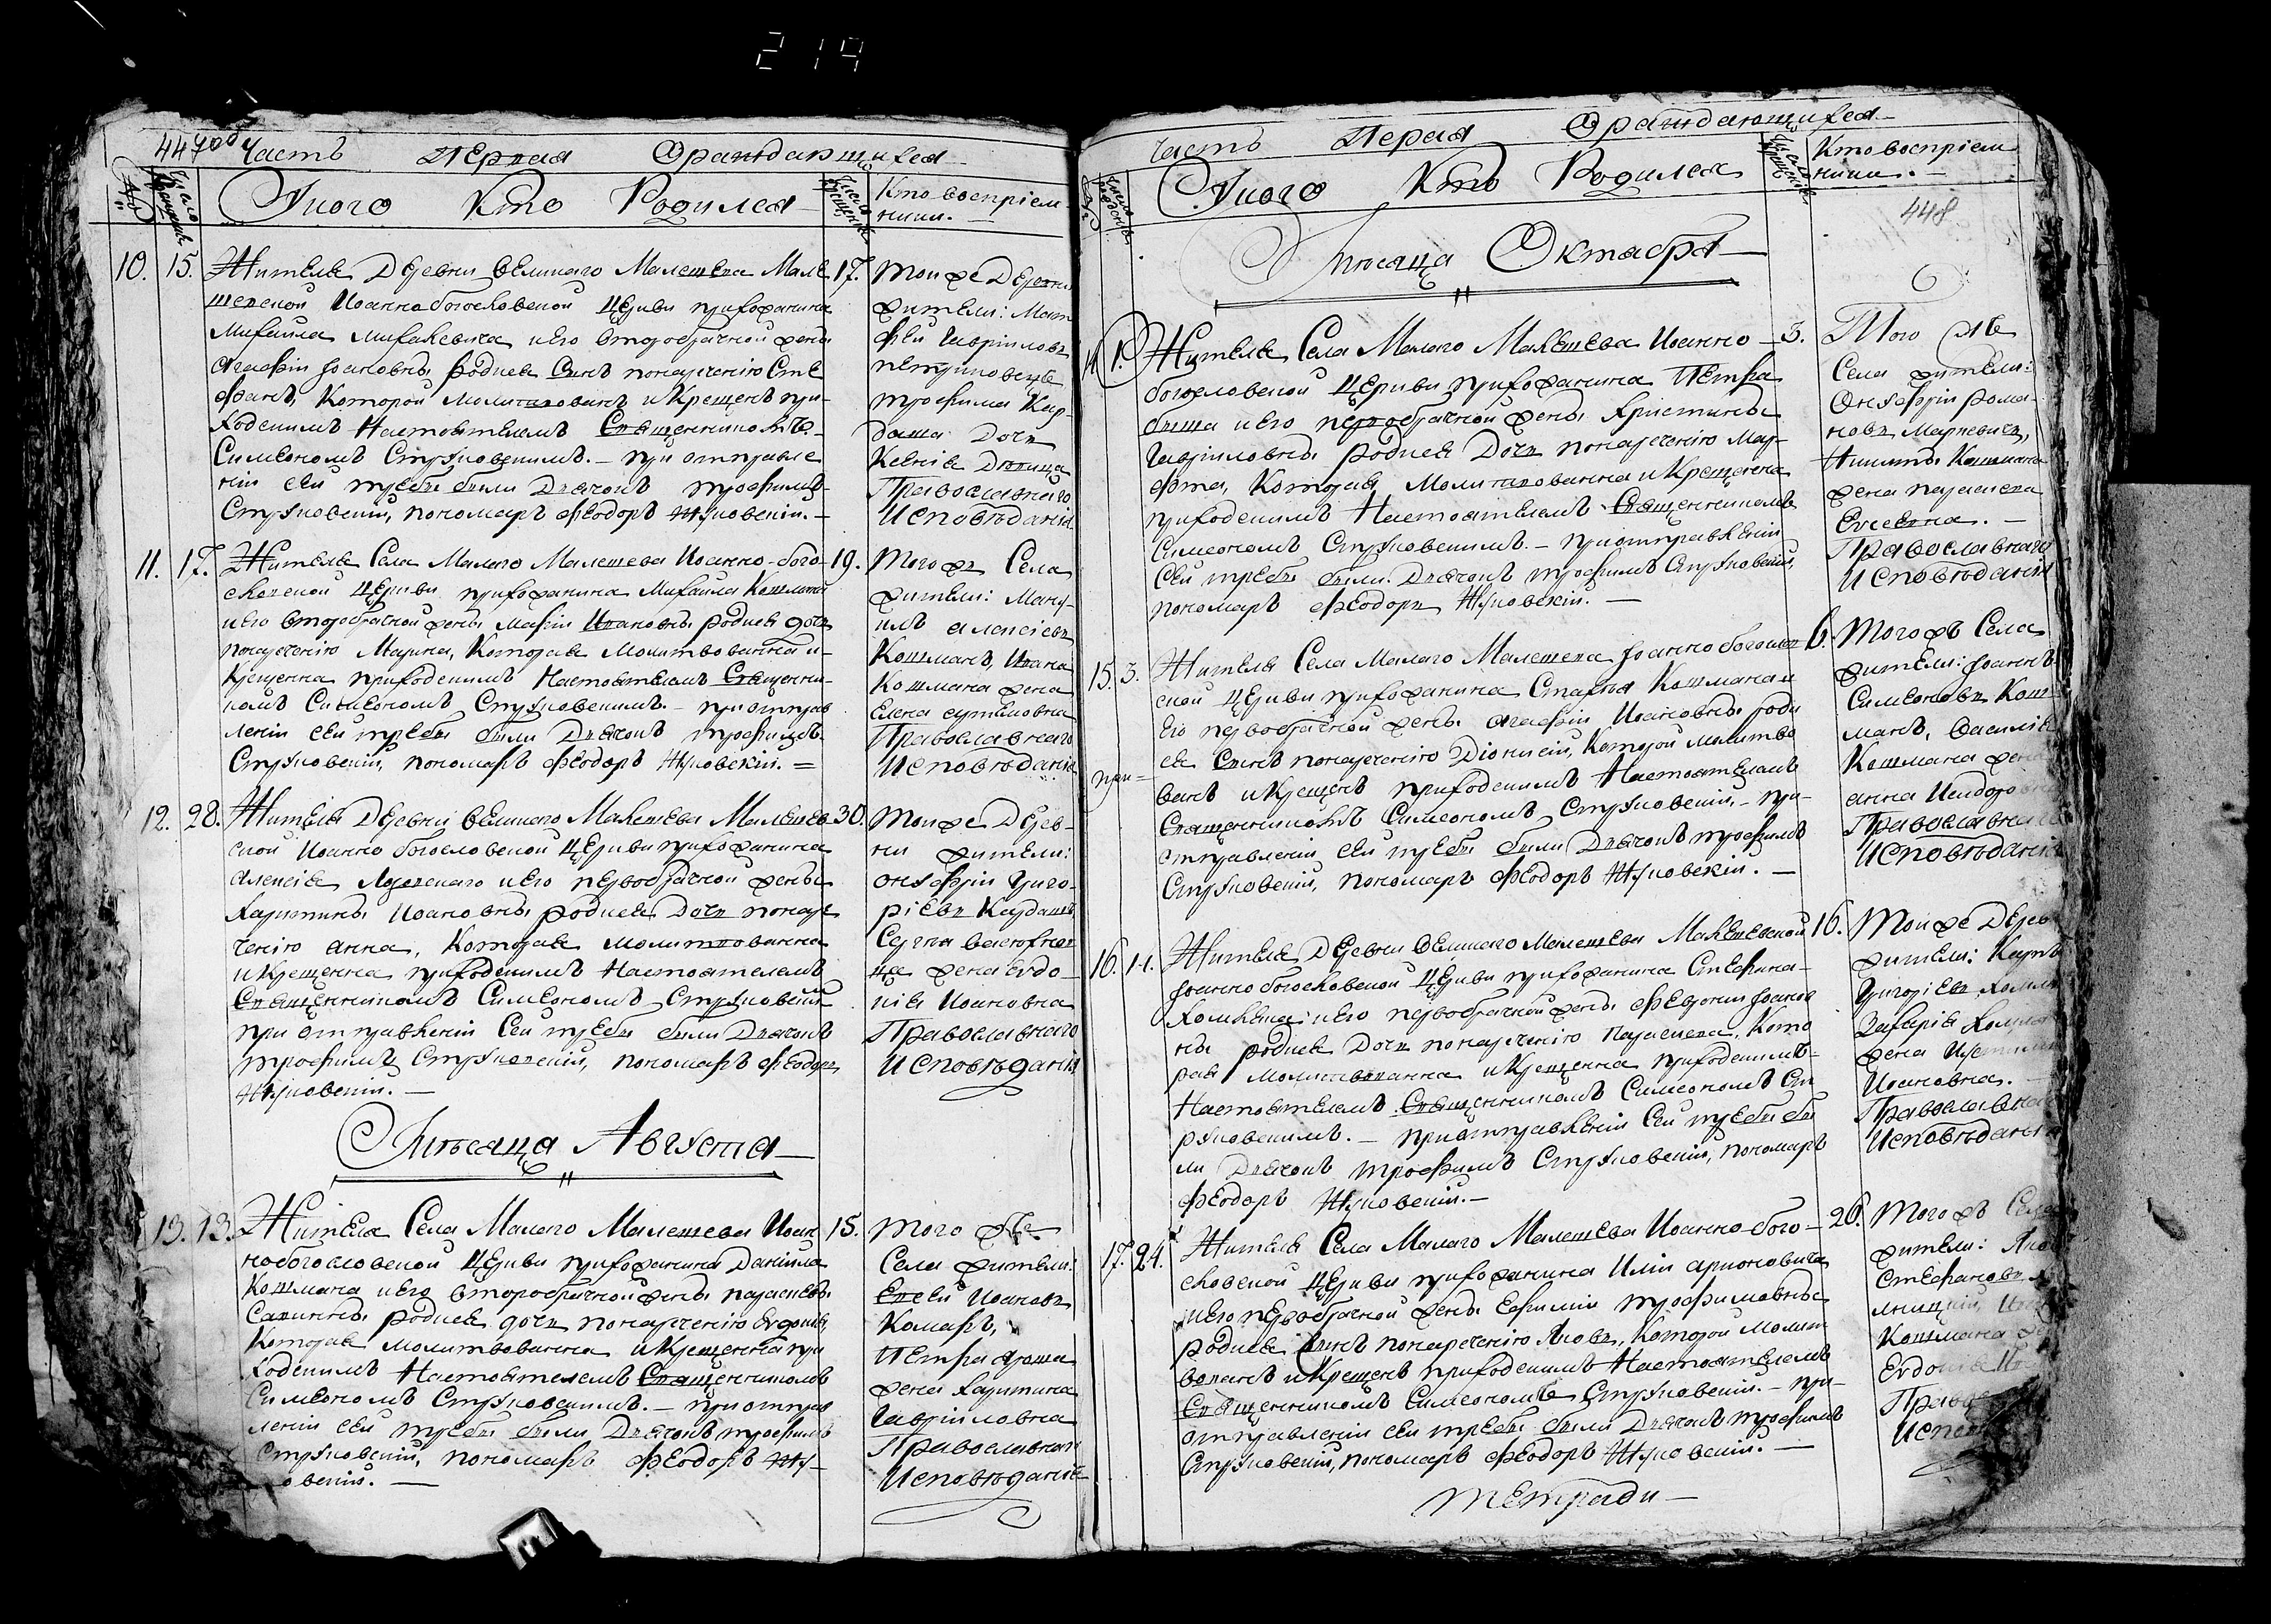 219
447 об
Часть Первая Ораждающихся
№
Число рожденія
У кого Кто Родился
Число крещенія
Кто воспріем-
ники.
10. 15. Жителя Деревни великаго Малешева Мале
шевской Иоаннобогословской Церкви прихожанина
Михаила и его второбрачной жены
Агафіи Іоановны родися Сынъ понареченію Сте
фанъ, Которой Молитвованъ и Крещенъ при-
ходскимъ Настоятелемъ Священникомъ
Симеономъ Струковскимъ. – при отправле
ніи сей требы были Дьячокъ трофимъ
Струковскій, пономарь Феодоръ Жуковскій. –
17. Тоиже Деревни
жители: Мат
фей Гавріиловъ
трофима Кар-
даша Дочь
Ксенія Девица
Православнаго
Исповѣданія
11. 17. Жителя Села Малаго Малешева Иоанно-бого
словской Церкви прихожанина Михаила Кошмана
и его второбрачной жены Маріи Ивановны родися дочь
понареченію Марина, Которая Молитвованна и
Крещенна приходскимъ Настоятелемъ Священни-
комъ Симеономъ Струковскимъ. – при отправ
леніи сей требы были Дьячокъ трофимъ
Струковскій, пономарь Феодоръ Жуковскій. =
19. Тогожъ Села
жители: Ману-
илъ Алексіевъ
Кошманъ, Ивана
Кошмана жена
Елена
Православнаго
Исповѣданія
12. 28. Жителя Деревни великаго Малешева Малешев
ской Иоанно богословской Церкви прихожанина
Алексія и его первобрачной жены
Харитины Иоановны родися Дочь понаре
ченію Анна, Которая молитвованна
и Крещенна приходскимъ Настоятелемъ
Священникомъ Симеономъ Струковскимъ
при отправленіи Сей требы были Дьячокъ
трофимъ Струковскій, пономарь Феодоръ
Жуковскій. –
30. Тоиже Дерев-
ни жители:
Онуфрій Григо-
ріевъ Кардашъ,
Сергія
жена Евдо-
кія Иоановна
Православнаго
Исповѣданія
Мѣсяца Августа
13. 13. Жителя Села Малаго Малешева Иоан
нобогословской Церкви прихожанина Даніила
Кошмана и его второбрачной жены параскевы
Савинны родися дочь понареченію Евдокія,
Которая молитвованна и Крещенна при
ходскимъ Настоятелемъ Священникомъ
Симеономъ Струковскимъ. – при отправ
леніи сей требы были Дьячокъ трофимъ
Струковскій, пономарь Феодоръ Жу-
ковскій. –
15. Того Же
Села жители:
Евсей Иоановъ
Комаръ,
Петра
жена Харитина
Гавріиловна
Православнаго
Исповѣданія
Часть Перая Ораждающихся
Число рожденія
У кого Кто Родился
Число крещенія
Кто воспріем
ники. –
448
Мѣсяца Октября
14. 1. Жителя Села Малаго Малешева Иоанно
богословской Церкви прихожанина Петра
и его первобрачной жены Христины
Гавріиловны родися Дочь понареченію Мар-
фа, Которая Молитвованна и Крещенна
приходскимъ Настоятелемъ Священникомъ
Симеономъ Струковскимъ. – при отправленіи
Сей требы были Дьячокъ трофимъ Струковскій,
пономарь Феодоръ Жуковскій. –
3. Того Же
Села жители:
Онуфрій рома-
новъ Маркевичъ,
Никиты Кошмана
жена параскева
Евсеевна. –
Православнаго
Исповѣданія
15. 3. Жителя Села Малаго Малешева Іоаннобогослов
ской Церкви прихожанина Стахія Кошмана и
его первобрачной жены Агафіи Иоановны роди
ся Сынъ понареченію Діонисій, Которой молитво
при=
ванъ и Крещенъ приходскимъ Настоятелемъ
Священникомъ Симеономъ Струковскій, – при
отправленіи сей требы были Дьячокъ трофимъ
Струковскій, пономарь Феодоръ Жуковскій. –
6. Тогожъ Села
жители: Іоаннъ
Симеоновъ Кош
манъ, Василія
Кошмана жена
анна
Православнаго
Исповѣданія
16. 14. Жителя Деревни великаго Малешева Малешевской
Іоаннобогословской Церкви прихожанина Стефана
и его первобрачной жены Февроніи Іоанов
ны родися Дочь понареченію Параскева, Кото
рая Молитвованна и Крещенна приходскимъ
Настоятелемъ Священникомъ Симеономъ Ст
руковскимъ. – при отправленіи Сей требы бы
ли Дьячокъ трофимъ Струковскій, пономарь
Феодоръ Жуковскій. –
16. Тоиже Дерев
жители: Карпъ
Григоріевъ
Захарія
жена
Иоановна. –
Православна
Исповѣдані
17. 24. Жителя Села Малаго Малешева Иоанно-бого-
словской Церкви прихожанина Иліи
и его первобрачной жены Ефиміи трофимовны
родися Сынъ понареченію Яковъ, Которой Молит
вованъ и Крещенъ приходскимъ Настоятелемъ
Священникомъ Симеономъ Струковскій. – при
отправленіи сей требы были Дьячокъ трофимъ
Струковскій, пономарь Феодоръ Жуковскій. –
26. Тогожъ Села
жители: Яков
Стефановъ
Кошмана
Евдокія
Право
Испов
тетради –